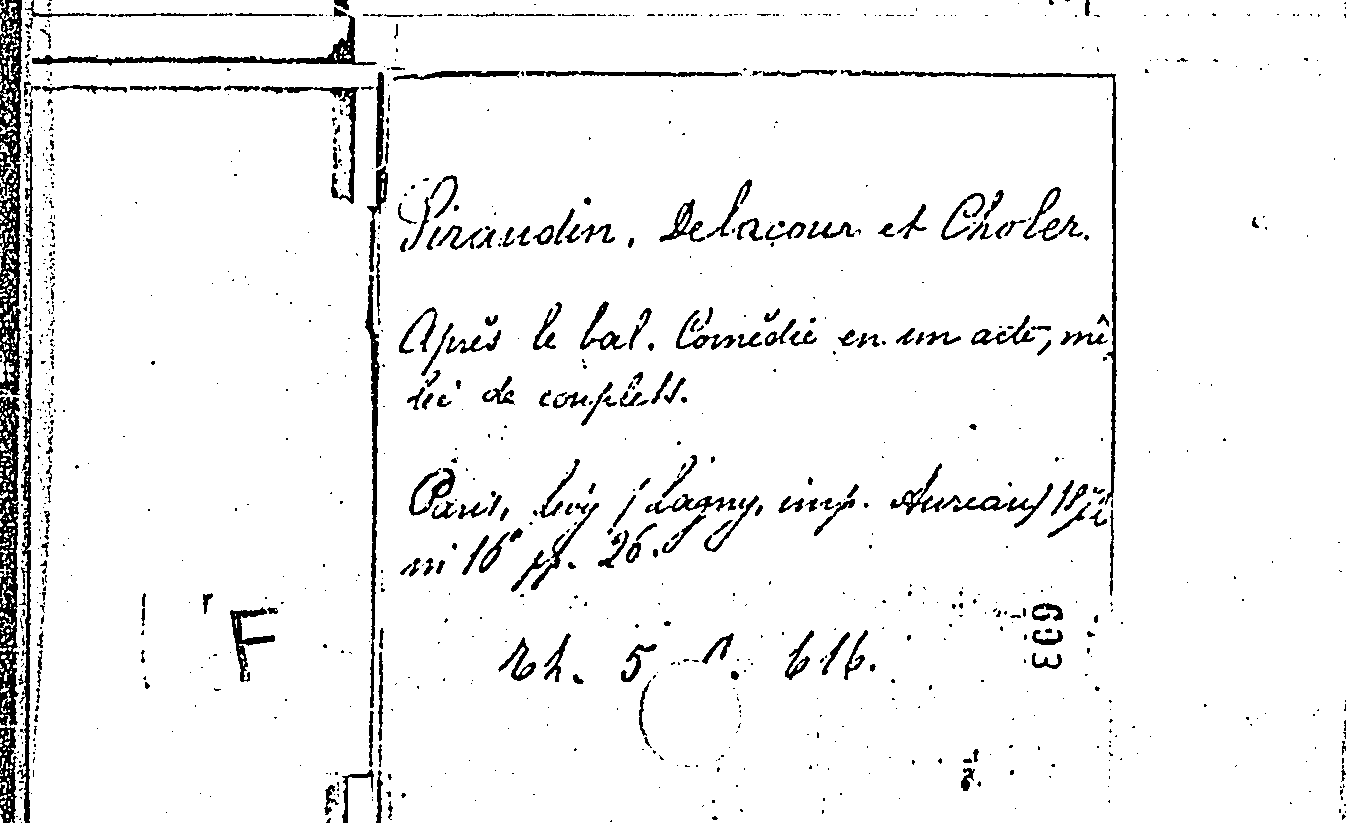 Siraudin, Delacour et Choler.
Après le bal. Comédie en un acte, mê
lée de couplets.
Paris, Lévy (Lagny, imp. Aureau)
in 16° pp. 26.
Th. 5 616.
603
F